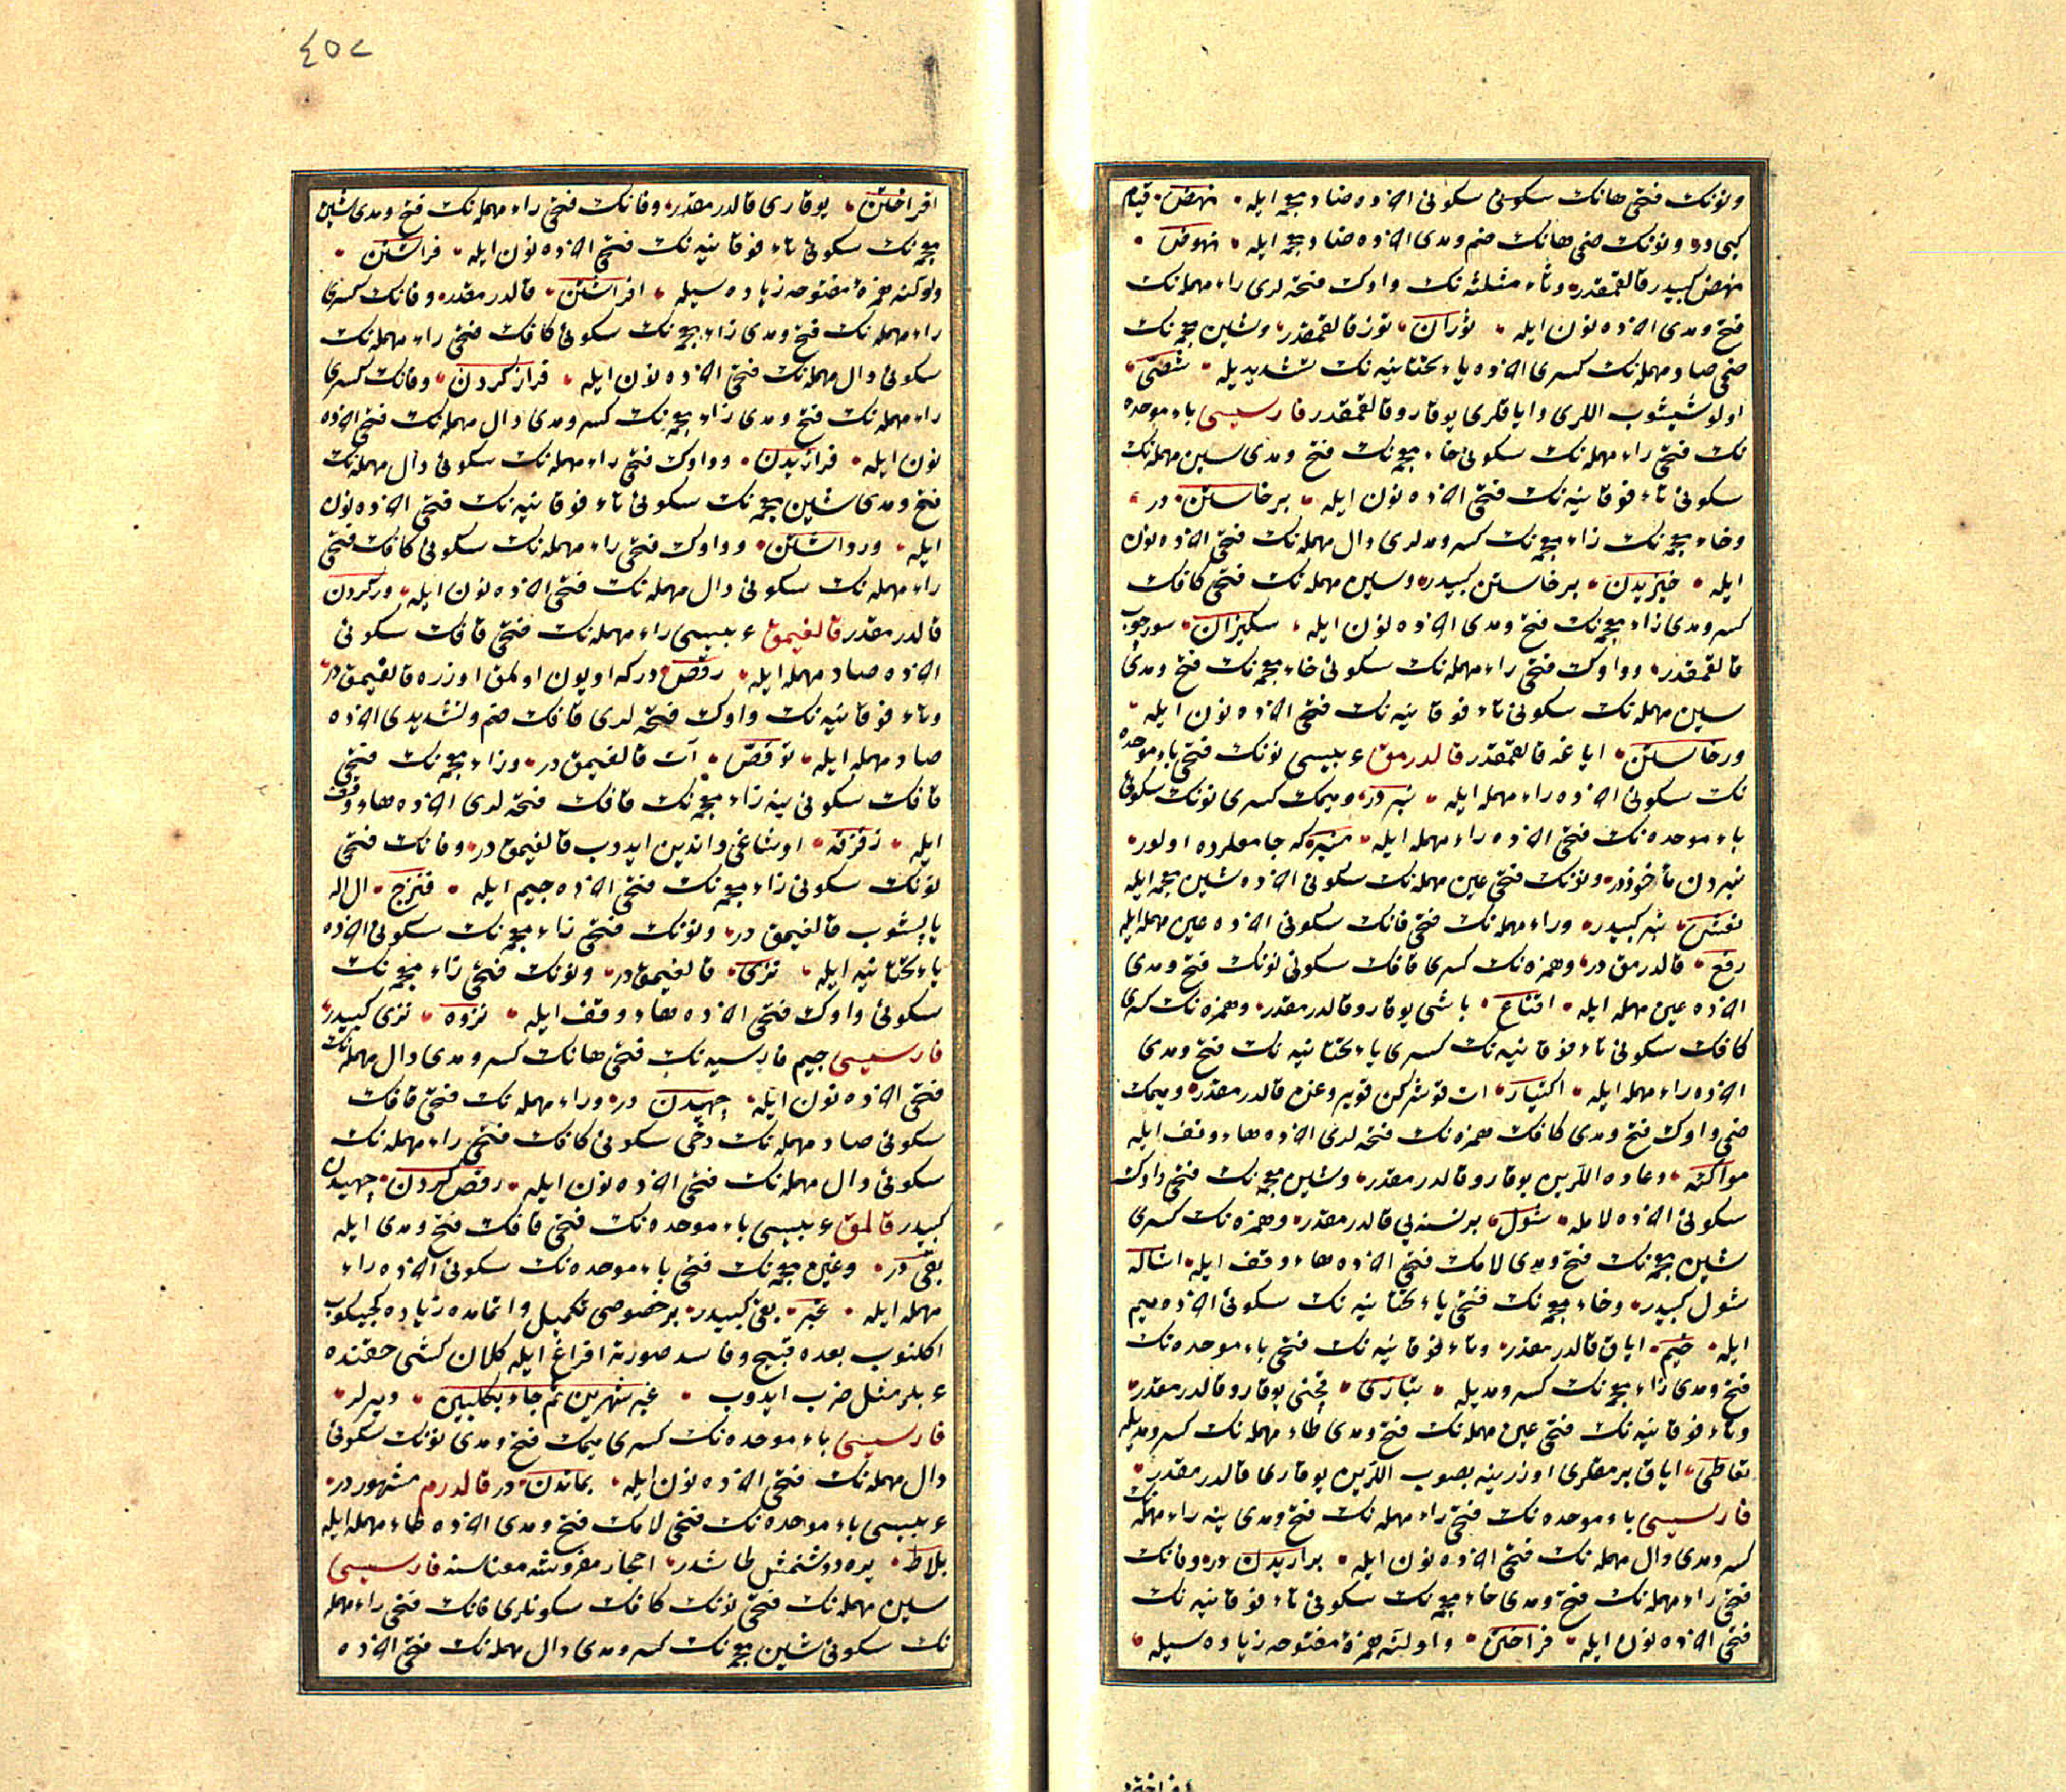 ونونك فتحى هانك سكونى سكونى اخرده ضاد معجمه ايله نهض قيام
كبى در ونونك ضمى هانك ضم ومدى اخرده ضاد معجمه ايله نهوض
نهض كبيدر قالقمقدر وثاء مثلثه نك واوك فتحه لرى راء مهمله نك
فتح ومدى اخرده نون ايله ثوران توز قالقمقدر وشين معجمه نك
ضمى صاد مهمله نك كسرى اخرده ياء تحتانيه نك تشديديله شصى
اولو شيشوب اللرى واياقلرى يوقارو قالقمقدر فارسيسى باء موحده
نك فتحى راء مهمله نك سكونى خاء معجمه نك فتح ومدى سين مهمله نك
سكونى تاء فوقانيه نك فتحى اخرده نون ايله برخاستن در
وخاء معجمه نك زاء معجمه نك كسر ومدلرى دال مهمله نك فتحى اخرده نون
ايله خيزيدن برخاستن كبيدر وسين مهمله نك فتحى كافك
كسر ومدى زاء معجمه نك فتح ومدى اخرده نون ايله سكيزان سورجوب
قالقمقدر وواوك فتحى راء مهمله نك سكونى خاء معجمه نك فتح ومدى
سين مهمله نك سكونى تاء فوقانيه نك فتحى اخرده نون ايله
ورخاستن اياغه قالقمقدر قالدرمق عربيسى نونك فتحى باء موحده
نك سكونى اخرده راء مهمله ايله نبر در وميمك كسرى نونك سكونى
باء موحده نك فتحى اخرده راء مهمله ايله منبر كه جامعلرده اولور
نبردن مأخوذدر ونونك فتحى عين مهمله نك سكونى اخرده شين معجمه ايله
نعش نبر كبيدر وراء مهمله نك فتحى فانك سكونى اخرده عين مهمله ايله
رفع قالدرمق در وهمزه نك كسرى قافك سكونى نونك فتح ومدى
اخرده عين مهمله ايله اقناع باشى يوقارو قالدرمقدر وهمزه نك كسرى
كافك سكونى تاء فوقانيه نك كسرى ياء تحتانيه نك فتح ومدى
اخرده راء مهمله ايله اكتيار ات قوشركن قويروغن قالدرمقدر وميمك
ضمى واوك فتح ومدى كافك همزه نك فتحه لرى اخرده هاء وقف ايله
مواكئه دعاده اللرين يوقارو قالدرمقدر وشين معجمه نك فتحى واوك
سكونى اخرده لامله شول برنسنه يى قالدرمقدر وهمزه نك كسرى
شين معجمه نك فتح ومدى لامك فتحى اخرده هاء وقف ايله اشاله
شول كبيدر وخاء معجمه نك فتحى ياء تحتانيه نك سكونى اخرده ميم
ايله خيم اياق قالدرمقدر وتاء فوقانيه نك فتحى باء موحده نك
فتح ومدى زاء معجمه نك كسر ومديله تبازى يوقارو قالدرمقدر
وتاء فوقانيه نك فتحى عين مهمله نك فتح ومدى طاء مهمله نك كسر ومديله
تعاطى اياق برمقلرى اوزرينه بصوب اللرين يوقارى قالدرمقدر
فارسيسى باء موحده نك فتحى راء مهمله نك فتح ومدى ينه راء مهمله نك
كسر ومدى دال مهمله نك فتحى اخرده نون ايله براريدن در وفانك
فتحى راء مهمله نك فتح ومدى خاء معجمه نك سكونى تاء فوقانيه نك
فتحى اخرده نون ايله فراختن واولنه همزۀ مفتوحه زياده سيله
٤٥٢
افراختن يوقارى قالدرمقدر وفانك فتحى راء مهمله نك فتح ومدى شين
معجمه نك سكونى تاء فوقانيه نك فتحى اخرده نون ايله فراشتن
واولنه همزۀ مفتوحه زياده سيله افراشتن قالدرمقدر وفانك كسرى
راء مهمله نك فتح ومدى زاء معجمه نك سكونى كافك فتحى راء مهمله نك
سكونى دال مهمله نك فتحى اخرده نون ايله فراز كردن وفانك كسرى
راء مهمله نك فتح ومدى زاء معجمه نك كسر ومدى دال مهمله نك فتحى اخرده
نون ايله فرازيدن وواوك فتحى راء مهمله نك سكونى دال مهمله نك
فتح ومدى شين معجمه نك سكونى تاء فوقانيه نك فتحى اخرده نون
ايله ورداشتن وواوك فتحى راء مهمله نك سكونى كافك فتحى
راء مهمله نك سكونى دال مهمله نك فتحى اخرده نون ايله وركردن
قالدرمقدر قالغيمق عربيسى راء مهمله نك فتحى قافك سكونى
اخرده صاد مهمله ايله رقص در كه اويون اولمق اوزره قالغيمق در
وتاء فوقانيه نك واوك فتحه لرى قافك ضم وتشديدى اخرده
صاد مهمله ايله توقص آت قالغيمق در وزاء معجمه نك فتحى
قافك سكونى ينه زاء معجمه نك قافك فتحه لرى اخرده هاء وقف
ايله زقزقه اوشاغى دانديب ايدوب قالغيمق در وفانك فتحى
نونك سكونى زاء معجمه نك فتحى اخرده جيم ايله فنزج ال اله
ياپشوب قالغيمق در ونونك فتحى زاء معجمه نك سكونى اخرده
ياء تحتانيه ايله نزى قالغيمق در ونونك فتحى زاء معجمه نك
سكونى واوك فتحى اخرده هاء وقف ايله نزوه نزى كبيدر
فارسيسى جيم فارسيه نك فتحى هانك كسر ومدى دال مهمله نك
فتحى اخرده نون ايله چهيدن در وراء مهمله نك فتحى قافك
سكونى صاد مهمله نك دخى سكونى كافك فتحى راء مهمله نك
سكونى دال مهمله نك فتحى اخرده نون ايله رقص كردن چهيدن
كبيدر قالمق عربيسى باء موحده نك فتحى قافك فتح ومدى ايله
بقى در وغين معجمه نك فتحى باء موحده نك سكونى اخرده راء
مهمله ايله غبر بقى كبيدر بر خصوصى تكميل واتمامده زياده كجيكوب
اكلنوب بعده قبيح وفاسد صورته افراغ ايله كلان كشى حقنده
عربلر مثل ضرب ايدوب غبر شهرين ثم جاء بكلبين ديرلر
فارسيسى باء موحده نك كسرى ميمك فتح ومدى نونك سكونى
دال مهمله نك فتحى اخرده نون ايله بماندن در قالدرم مشهور در
عربيسى باء موحده نك فتحى لامك فتح ومدى اخرده طاء مهمله ايله
بلاط يره دوشنمش طاشدر احجار مفروشه معناسنه فارسيسى
سين مهمله نك فتحى نونك كافك سكونلرى فانك فتحى راء مهمله
نك سكونى شين معجمه نك كسر ومدى دال مهمله نك فتحى اخرده